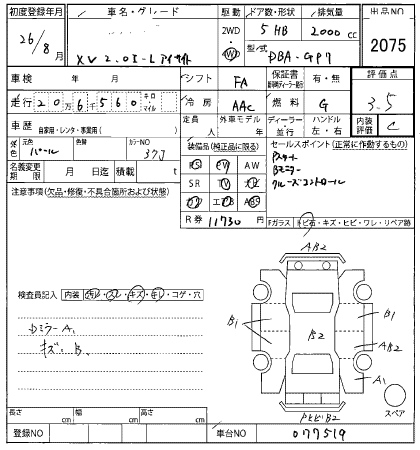 初度登録年月 車名・グレード 駆動 ドア数・形状 排気量 出品NO
26/8月 XV 2.0I-L アイサイト 2WD 4WD 5 HB 2000 cc 2075
型/式 DBA-GP7
車検 年 月 シフト FA 保証書 有・無 評価点
走行 20万6千560 キロ・マイル 冷房 AAC 燃料 G 3.5
車歴 自家用・レンタ・事業用( ) 定員 人 外車モデル 年 ディーラー・並行 ハンドル 左・右 内装評価 C
外色 元色 パール 色替 カラーNO 37J
装備品(純正品に限る) セールスポイント(正常に作動するもの)
名義変更期限 月 日迄 積載 t
PS PW AW Pスタート
SR TV ナビ Bミラー
カワ エアB ABS クルーズコントロール
注意事項(欠品・修復・不具合箇所および状態)
R券 11730 円 Fガラス トビ石・キズ・ヒビ・ワレ・リペア跡
AB2
検査員記入 内装 汚れ・スレ・キズ・キレ・コゲ・穴
DミラーA1
キズ B
B1 B2 B1
AB2
A1
スペア
PトビB2
長さ cm 幅 cm 高さ cm
登録NO 車台NO 077519